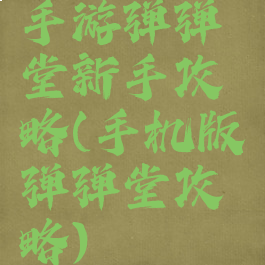 手游弹弹
堂新手攻
略(手机版
弹弹堂攻
略)